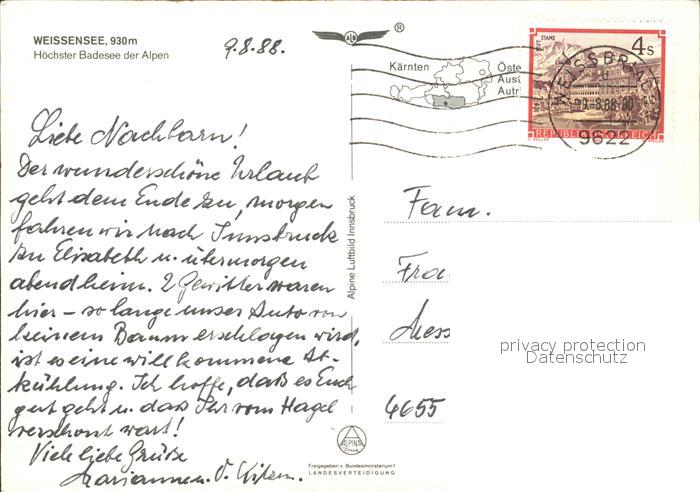 WEISSENSEE, 930m
Höchster Badesee der Alpen
9.8.88.
ALD
®
Kärnten
Öste
Ausl
Autr
STAMS
4 S
WEISSBRIACH
-9.-8.88-00
REPUBLIK ÖSTERREICH
9622
Liebe Nachbarn!
Der wunderschöne Urlaub
geht dem Ende zu, morgen
fahren wir nach Innsbruck
zu Elisabeth u. übermorgen
abend heim. 2 Gewitter waren
hier – so lange unser Auto von
keinem Baum erschlagen wird,
ist es eine willkommene Ab-
kühlung. Ich hoffe, daß es Euch
gut geht u. daß Ihr vom Hagel
verschont wart!
Viele liebe Grüße
Marianne u.
Alpine Luftbild Innsbruck
Fam.
Fra
4655
privacy protection
Datenschutz
ALPINA
Freigegeben v. Bundesministerium f.
LANDESVERTEIDIGUNG